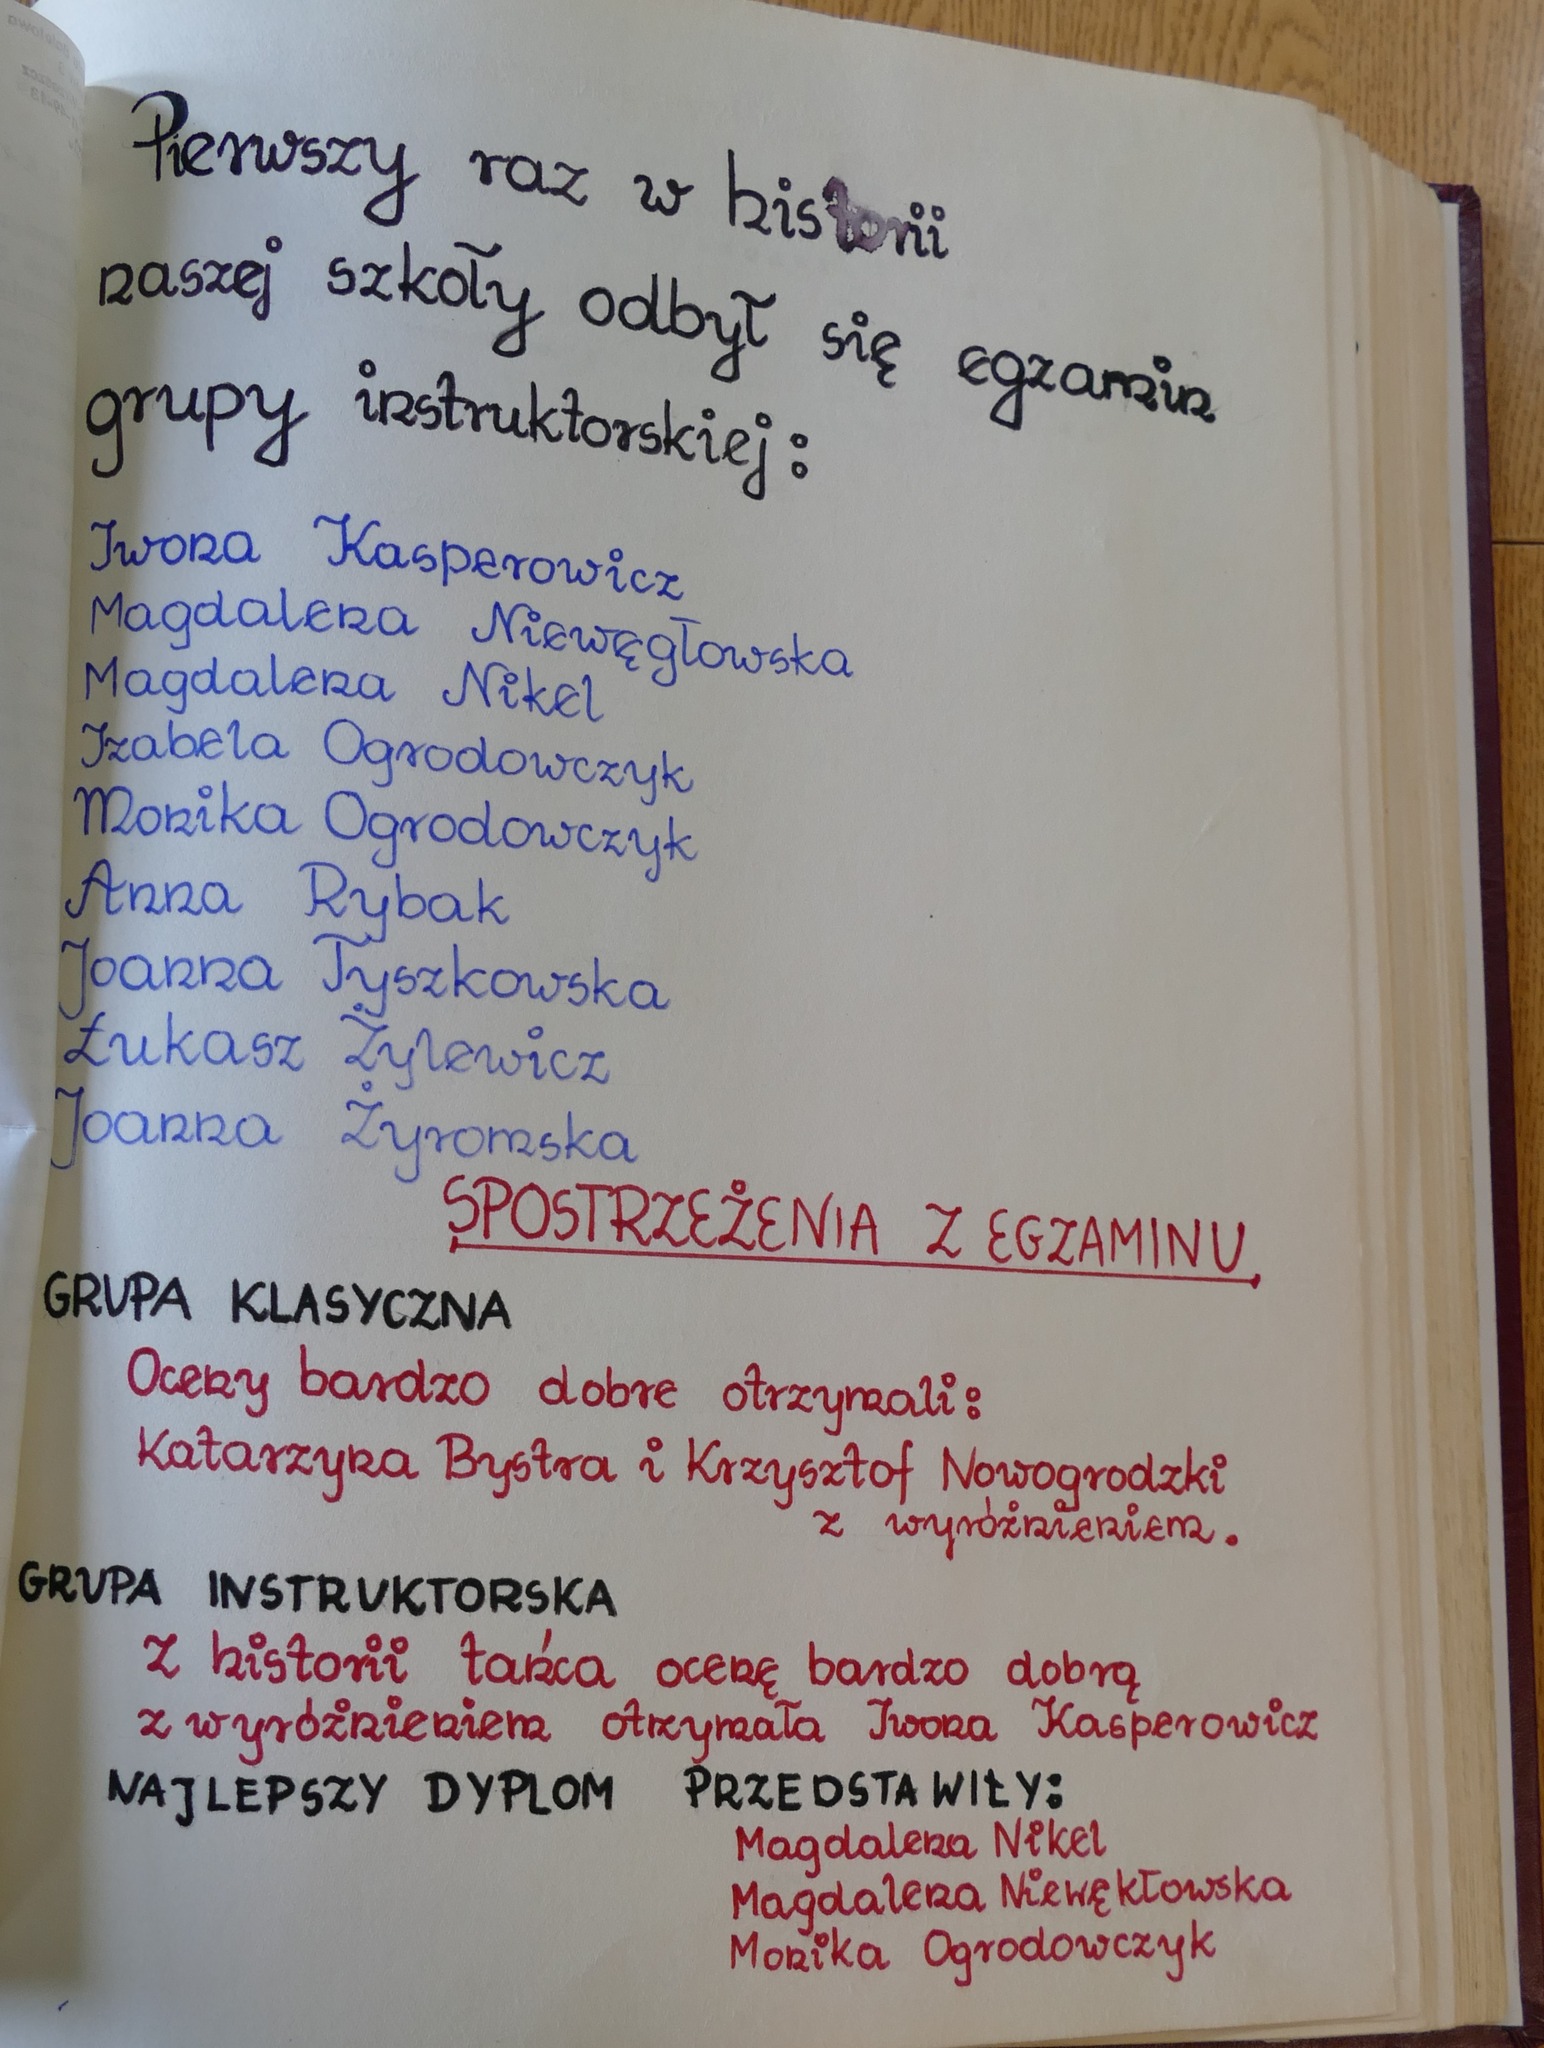 Pierwszy raz w historii
naszej szkoły odbył się egzamin
grupy instruktorskiej:
Iwona Kasperowicz
Magdalena Niewęgłowska
Magdalena Nikel
Izabela Ogrodowczyk
Monika Ogrodowczyk
Anna Rybak
Joanna Tyszkowska
Łukasz Żylewicz
Joanna Żyromska
SPOSTRZEŻENIA Z EGZAMINU
GRUPA KLASYCZNA
Oceny bardzo dobre otrzymali:
Katarzyna Bystra i Krzysztof Nowogrodzki
z wyróżnieniem.
GRUPA INSTRUKTORSKA
Z historii tańca ocenę bardzo dobrą
z wyróżnieniem otrzymała Iwona Kasperowicz
NAJLEPSZY DYPLOM PRZEDSTAWIŁY:
Magdalena Nikel
Magdalena Niewękłowska
Monika Ogrodowczyk